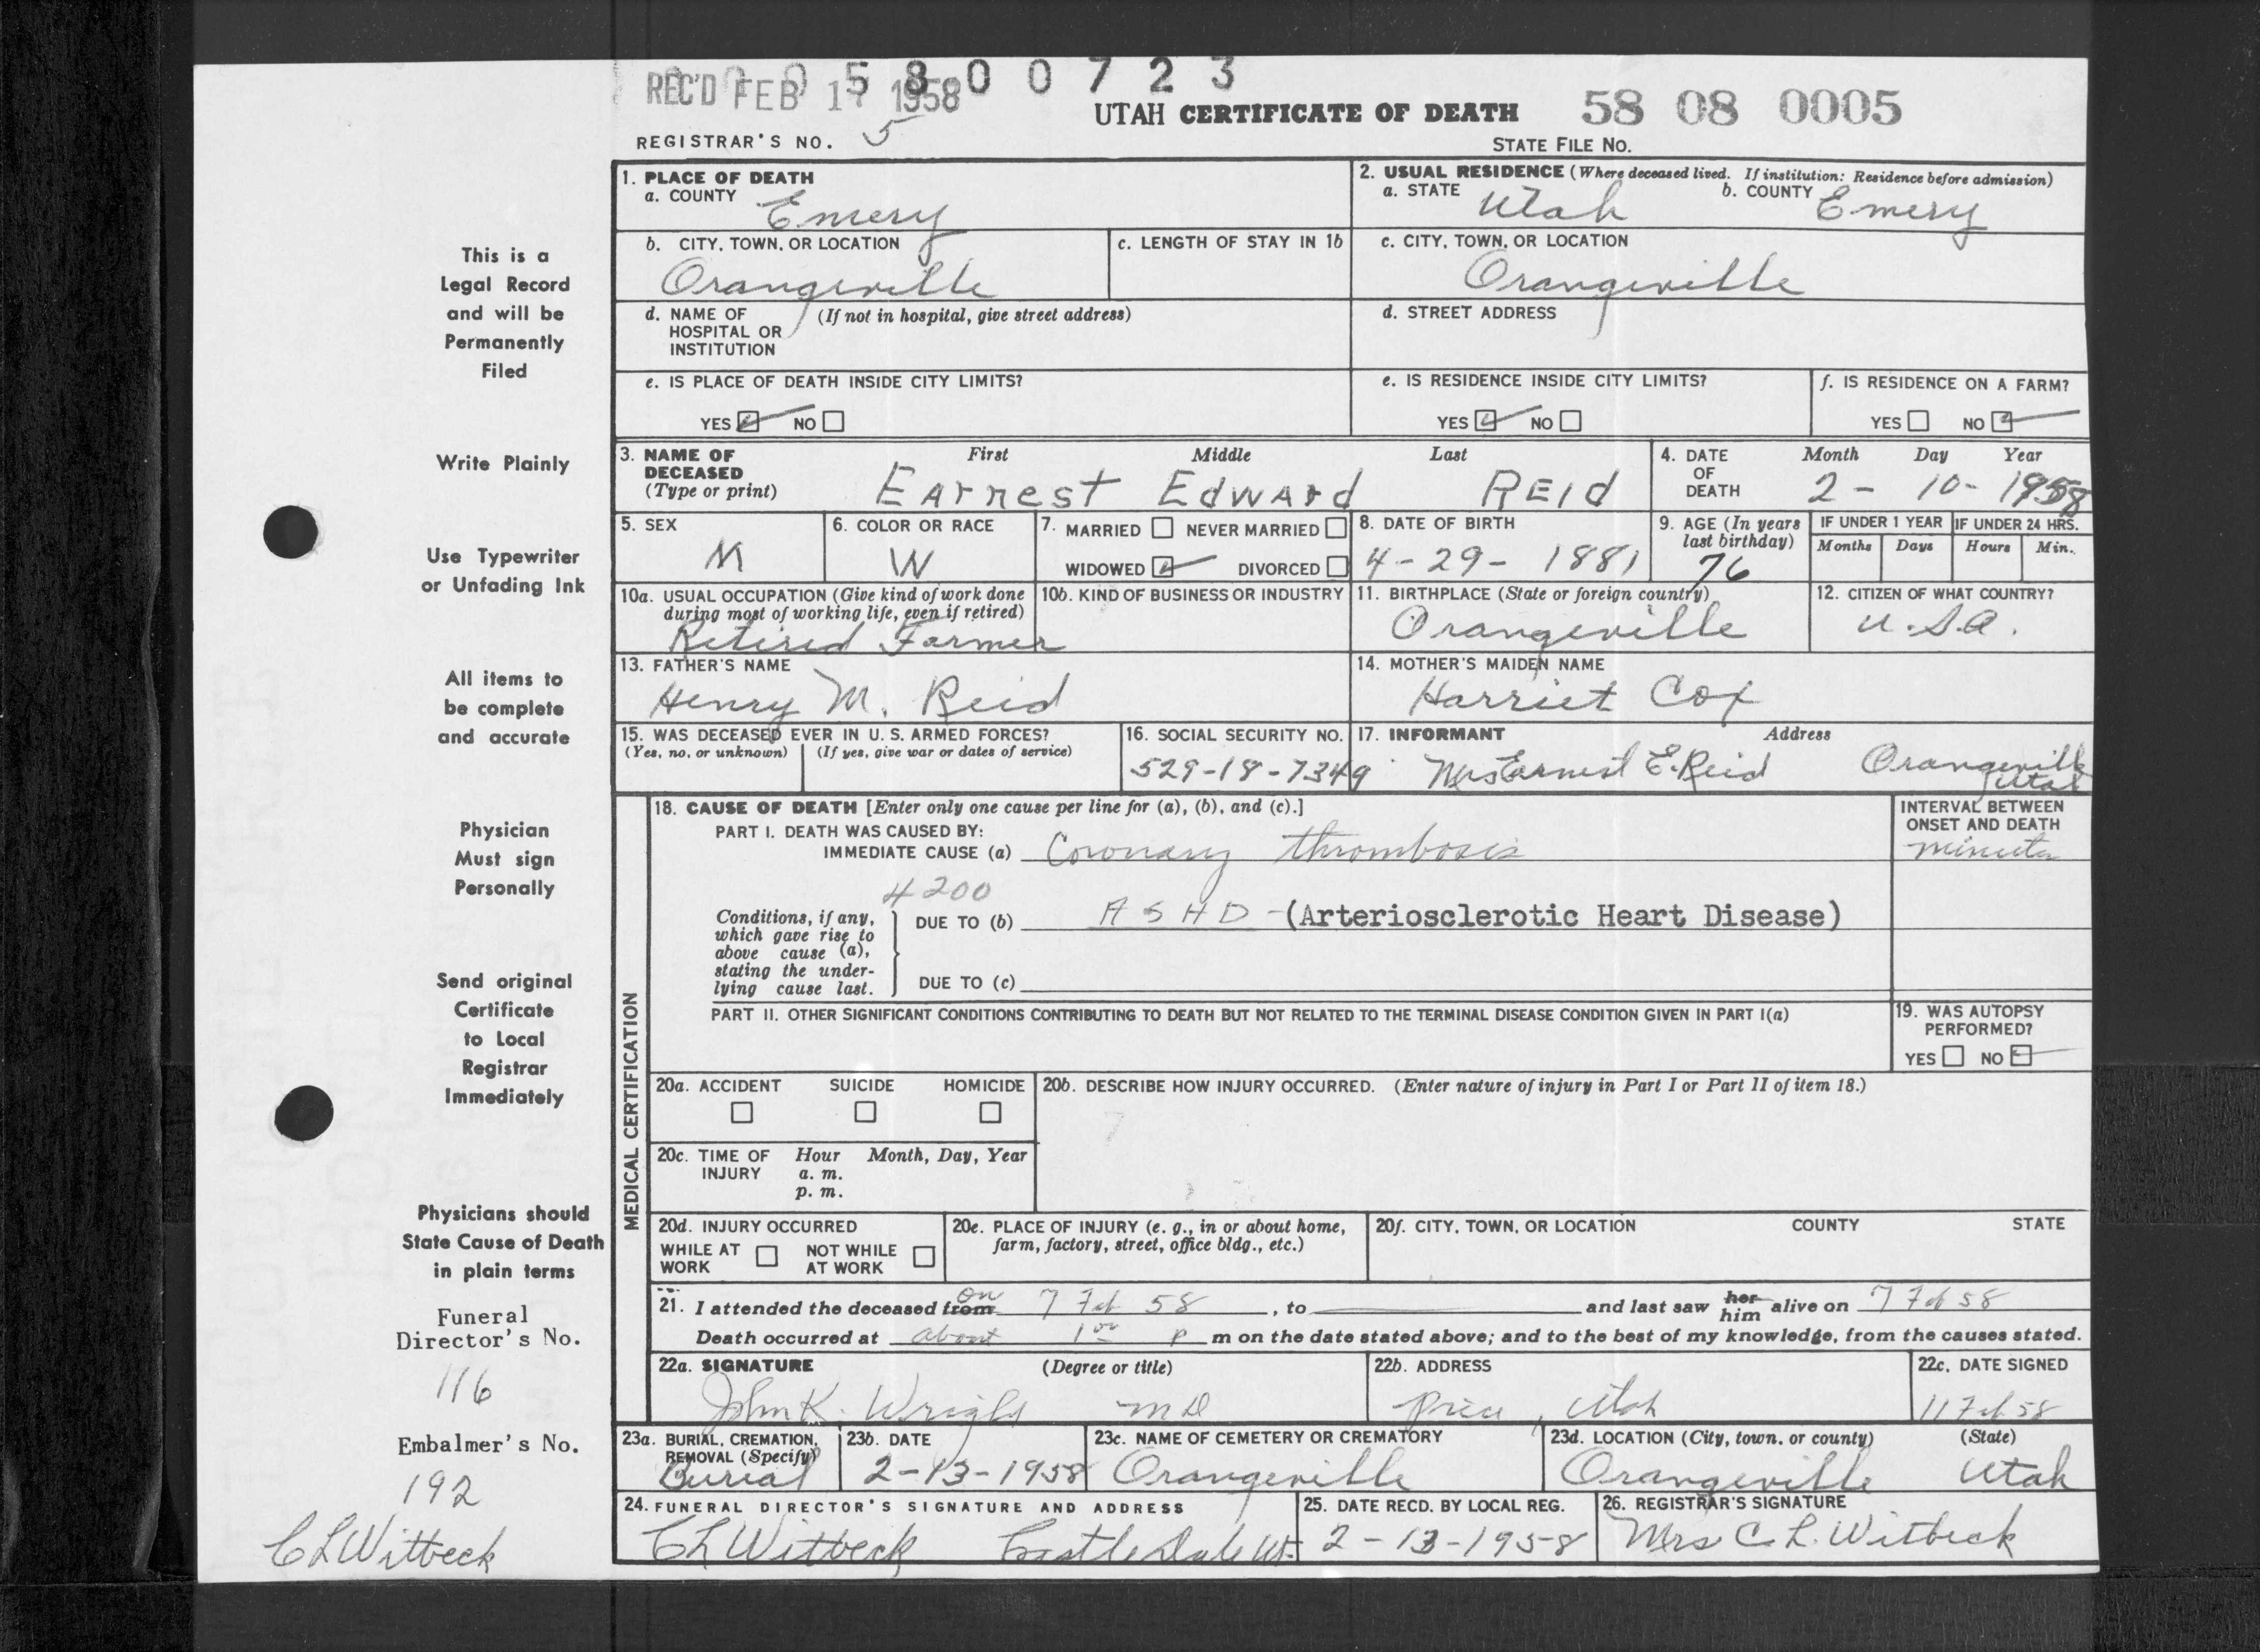 REC'D FEB 17 1958
0 0 0 5 8 0 0 7 2 3
UTAH CERTIFICATE OF DEATH
58 08 0005
REGISTRAR'S NO. 5
STATE FILE NO.
1. PLACE OF DEATH
a. COUNTY Emery
2. USUAL RESIDENCE (Where deceased lived. If institution: Residence before admission)
a. STATE Utah b. COUNTY Emery
b. CITY, TOWN, OR LOCATION
Orangeville
c. LENGTH OF STAY IN 1b
c. CITY, TOWN, OR LOCATION
Orangeville
d. NAME OF HOSPITAL OR INSTITUTION (If not in hospital, give street address)
d. STREET ADDRESS
e. IS PLACE OF DEATH INSIDE CITY LIMITS?
YES NO
e. IS RESIDENCE INSIDE CITY LIMITS?
YES NO
f. IS RESIDENCE ON A FARM?
YES NO
3. NAME OF DECEASED (Type or print)
First Middle Last
Earnest Edward Reid
4. DATE OF DEATH
Month Day Year
2 - 10 - 1958
5. SEX
M
6. COLOR OR RACE
W
7. MARRIED NEVER MARRIED
WIDOWED DIVORCED
8. DATE OF BIRTH
4 - 29 - 1881
9. AGE (In years last birthday)
76
IF UNDER 1 YEAR
Months Days
IF UNDER 24 HRS.
Hours Min.
10a. USUAL OCCUPATION (Give kind of work done during most of working life, even if retired)
Retired Farmer
10b. KIND OF BUSINESS OR INDUSTRY
11. BIRTHPLACE (State or foreign country)
Orangeville
12. CITIZEN OF WHAT COUNTRY?
U.S.A.
13. FATHER'S NAME
Henry M. Reid
14. MOTHER'S MAIDEN NAME
Harriet Cox
15. WAS DECEASED EVER IN U. S. ARMED FORCES?
(Yes, no, or unknown) (If yes, give war or dates of service)
16. SOCIAL SECURITY NO.
529-18-7349
17. INFORMANT Address
Mrs Earnest E. Reid Orangeville Utah
18. CAUSE OF DEATH [Enter only one cause per line for (a), (b), and (c).]
PART I. DEATH WAS CAUSED BY:
IMMEDIATE CAUSE (a) Coronary thrombosis
INTERVAL BETWEEN ONSET AND DEATH
minutes
4200
Conditions, if any, which gave rise to above cause (a), stating the underlying cause last.
DUE TO (b) ASHD - (Arteriosclerotic Heart Disease)
DUE TO (c)
PART II. OTHER SIGNIFICANT CONDITIONS CONTRIBUTING TO DEATH BUT NOT RELATED TO THE TERMINAL DISEASE CONDITION GIVEN IN PART I(a)
19. WAS AUTOPSY PERFORMED?
YES NO
20a. ACCIDENT SUICIDE HOMICIDE
20b. DESCRIBE HOW INJURY OCCURRED. (Enter nature of injury in Part I or Part II of item 18.)
20c. TIME OF INJURY Hour Month, Day, Year
a. m.
p. m.
20d. INJURY OCCURRED
WHILE AT WORK NOT WHILE AT WORK
20e. PLACE OF INJURY (e. g., in or about home, farm, factory, street, office bldg., etc.)
20f. CITY, TOWN, OR LOCATION COUNTY STATE
21. I attended the deceased from on 7 Feb 58, to and last saw her him alive on 7 Feb 58
Death occurred at about 1 00 p m on the date stated above; and to the best of my knowledge, from the causes stated.
22a. SIGNATURE (Degree or title)
John K. Wright MD
22b. ADDRESS
Price, Utah
22c. DATE SIGNED
11 Feb 58
23a. BURIAL, CREMATION, REMOVAL (Specify)
Burial
23b. DATE
2-13-1958
23c. NAME OF CEMETERY OR CREMATORY
Orangeville
23d. LOCATION (City, town, or county) (State)
Orangeville Utah
24. FUNERAL DIRECTOR'S SIGNATURE AND ADDRESS
C L Witbeck Castle Dale Ut
25. DATE RECD. BY LOCAL REG.
2-13-1958
26. REGISTRAR'S SIGNATURE
Mrs C. L. Witbeck
MEDICAL CERTIFICATION
This is a
Legal Record
and will be
Permanently
Filed
Write Plainly
Use Typewriter
or Unfading Ink
All items to
be complete
and accurate
Physician
Must sign
Personally
Send original
Certificate
to Local
Registrar
Immediately
Physicians should
State Cause of Death
in plain terms
Funeral
Director's No.
116
Embalmer's No.
192
C L Witbeck